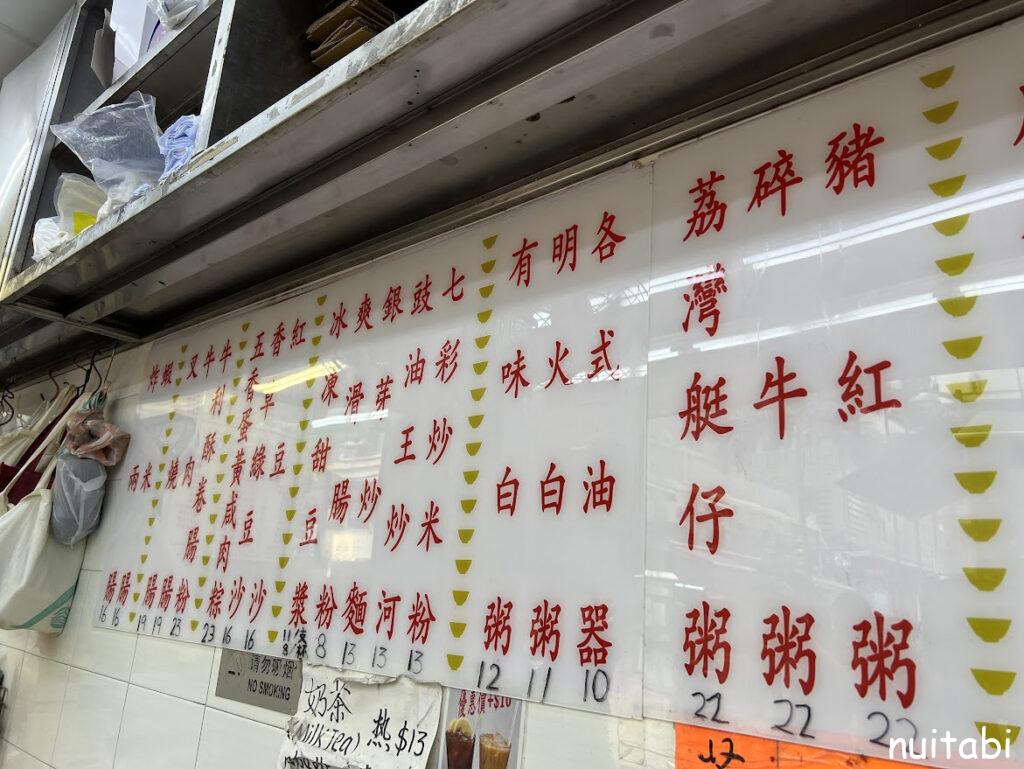 豬紅粥 22
碎牛粥 22
荔灣艇仔粥 22
各式油器 10
明火白粥 11
有味白粥 12
七彩炒米粉 13
豉油王炒河 13
銀芽炒麵 13
爽滑腸粉 8
冰凍甜豆漿
紅豆沙 16
香草綠豆沙 16
五香蛋黃咸肉粽 23
牛利酥卷腸粉 23
牛肉腸 19
叉燒腸 19
蝦米腸 16
炸兩腸 16
请勿吸烟
NO SMOKING
奶茶
(MilkTea) 热 $13
優惠價+$10
nuitabi